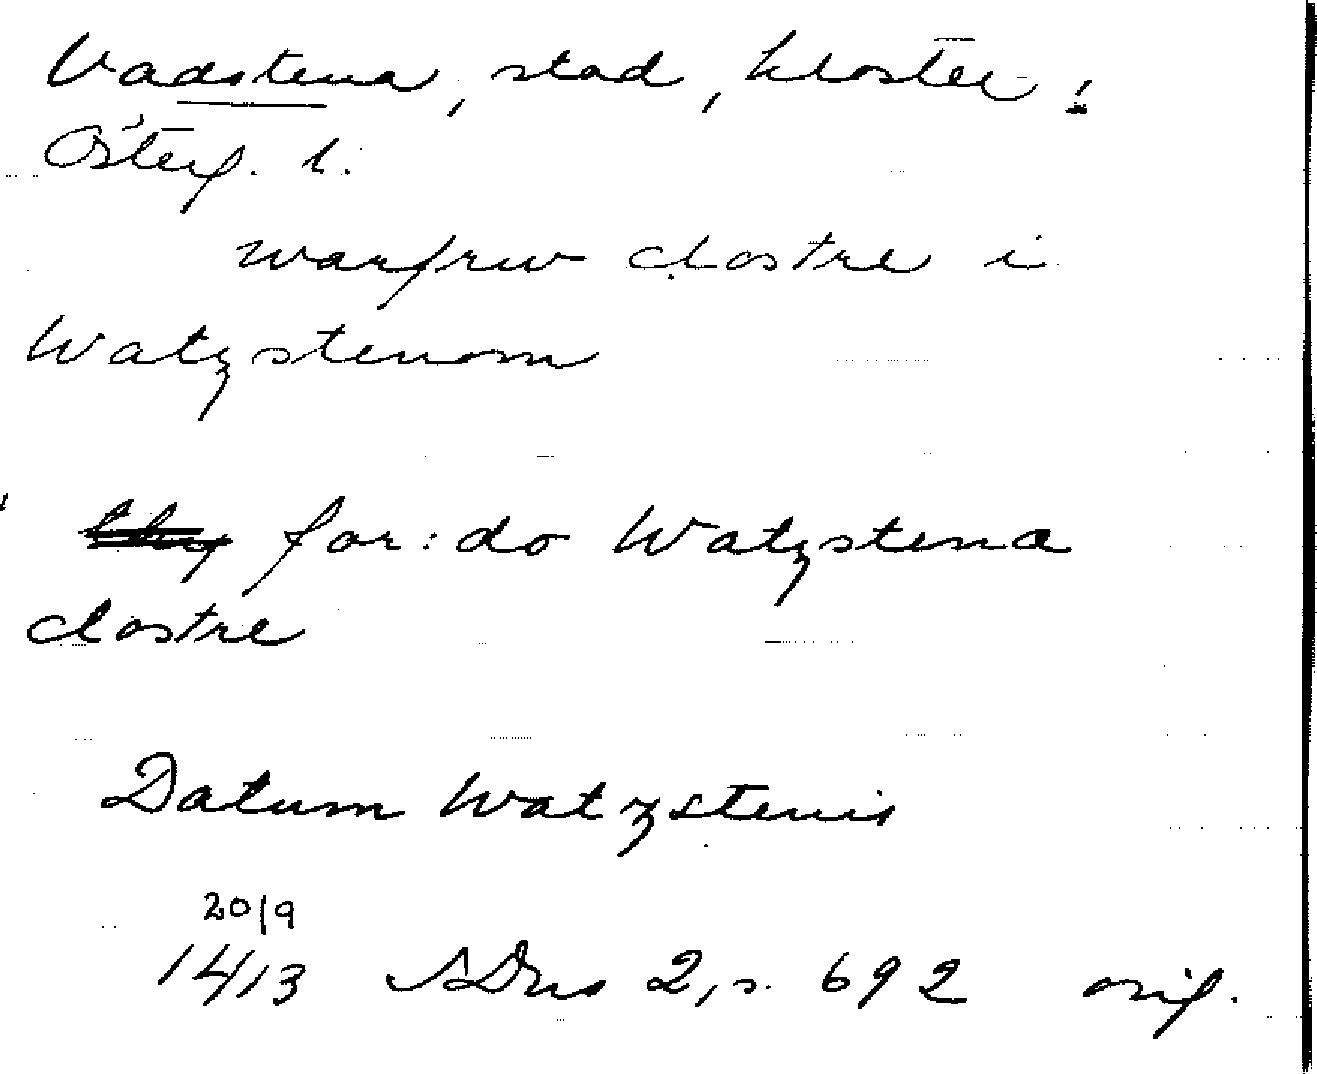 Vadstena, stad, kloster;
Österg. l.
warfrw clostre i
Watzstenom
for:do Watzstena
clostre
Datum Watzstenis
20/9
1413 SDns 2, s. 692 orig.